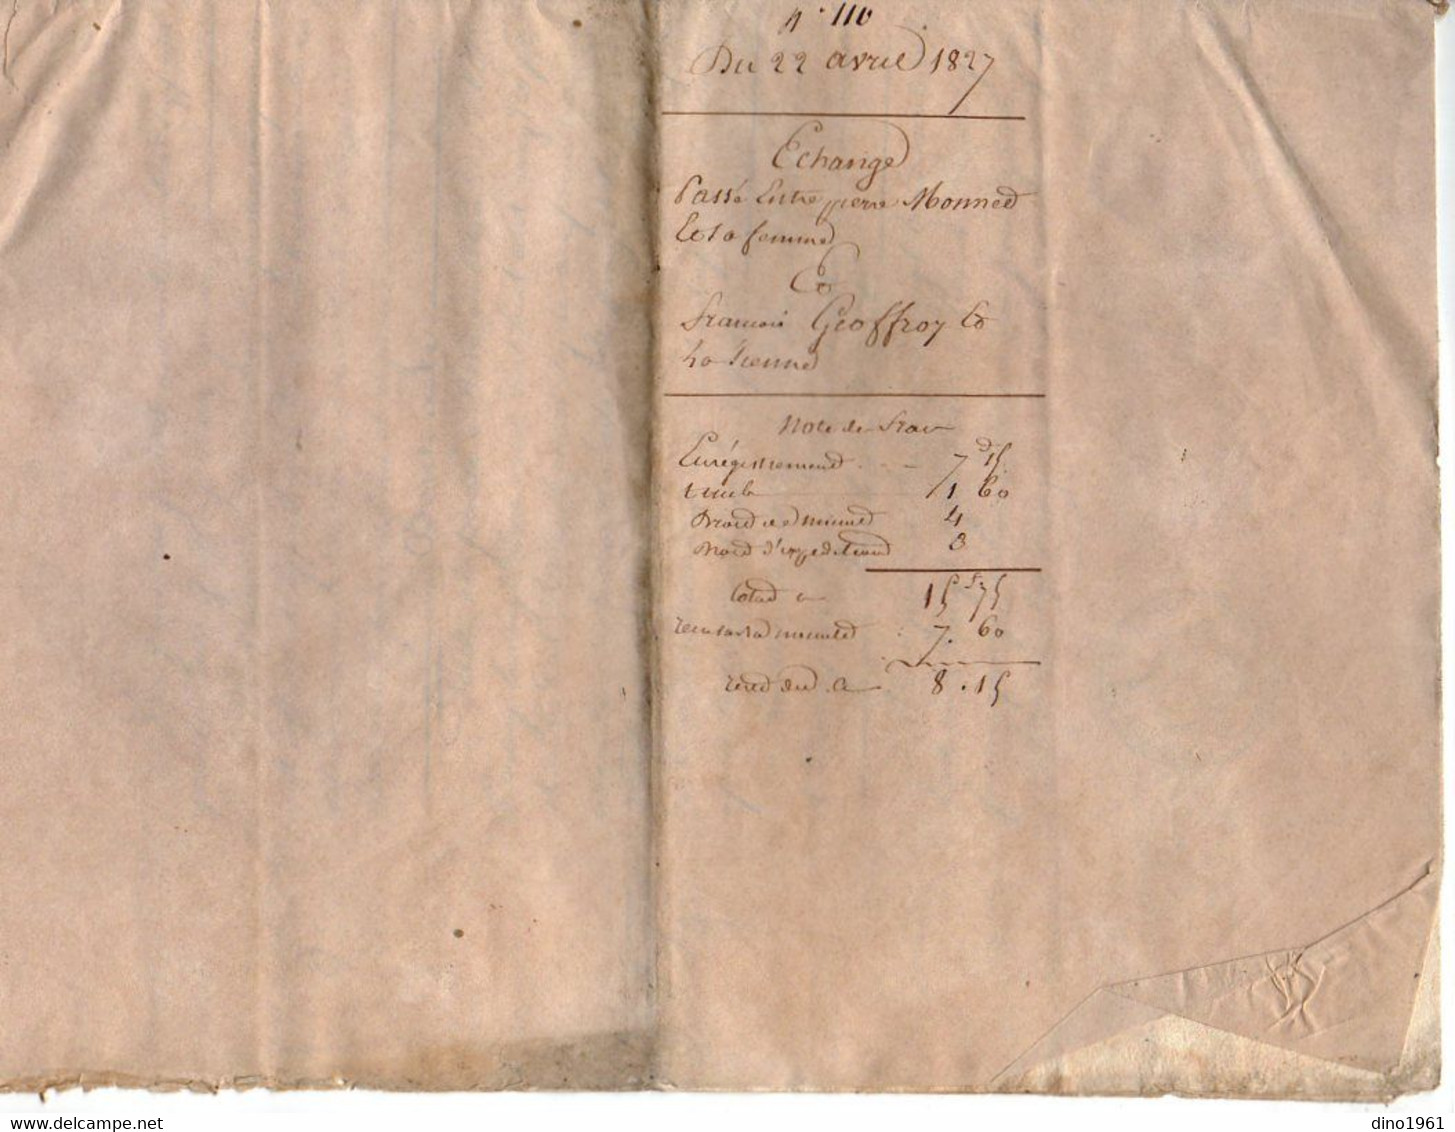 n° 110
Du 22 avril 1827
Echange
Passé Entre pierre Monned
Et sa femme
Et
francois Geoffroy Et
la sienne
Note de frai
Enrégistrement 7 15
timb 1 60
Droit de minute 4
Droit d'expedition 3
total 15 f 75
7. 60
8. 15
delcampe.net
dino1961